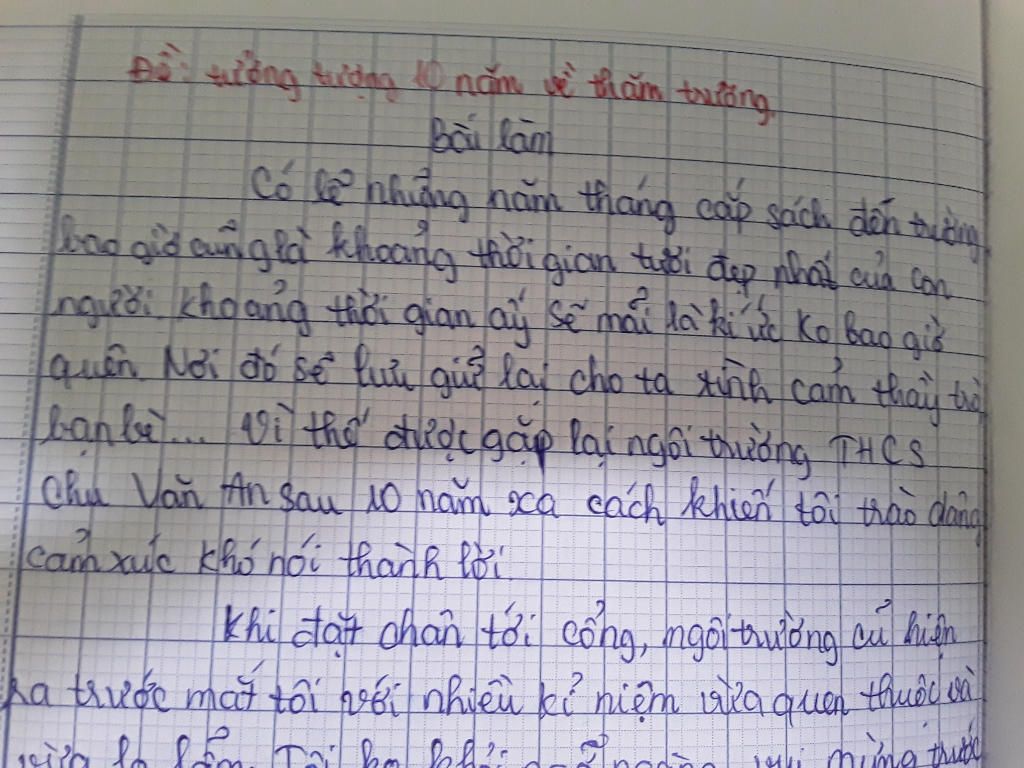 Đề: tưởng tượng 10 năm về thăm trường
Bài làm
Có lẽ những năm tháng cắp sách đến trường
bao giờ cũng là khoảng thời gian tươi đẹp nhất của con
người. Khoảng thời gian ấy sẽ mãi là kí ức ko bao giờ
quên Nơi đó sẽ lưu giữ lại cho ta tình cảm thầy trò
bạn bè... Vì thế được gặp lại ngôi trường THCS
Chu Văn An sau 10 năm xa cách khiến tôi trào dâng
cảm xúc khó nói thành lời.
Khi đặt chân tới cổng, ngôi trường cũ hiện
ra trước mắt tôi với nhiều kỉ niệm vừa quen thuộc và